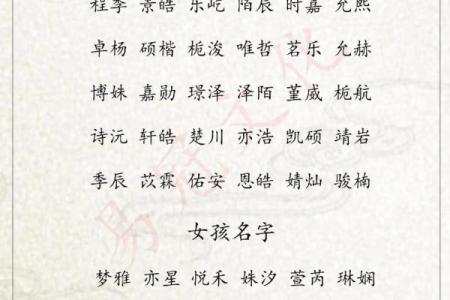 程季 景皓 乐屹 陌辰 时嘉 允熙
卓杨 硕楷 栀浚 唯哲 茗乐 允赫
博姝 嘉勋 璟泽 泽陌 堇威 栀航
诗沅 轩皓 楚川 亦浩 凯硕 靖岩
季辰 苡霖 佑安 恩皓 婧灿 骏楠
女孩名字
梦雅 亦星 悦禾 姝汐 萱芮 琳娴